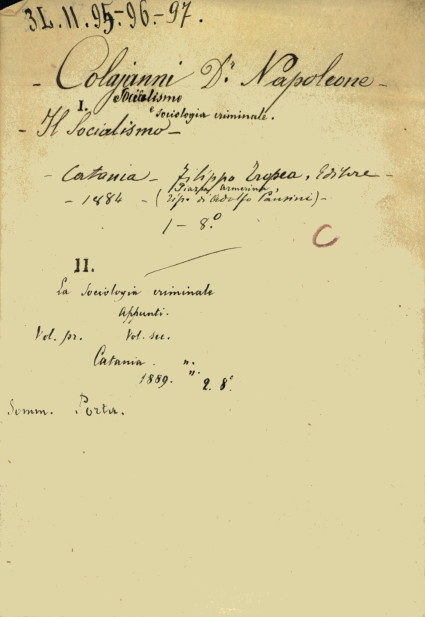 3L.11.95-96-97.
- Colajanni Dr. Napoleone -
I. Socialismo
e sociologia criminale.
- Il Socialismo -
- Catania - Filippo Tropea, Editore -
Piazza Armerina,
- 1884 - (Tipo di Adolfo Pansini) -
1 - 8°
C
II.
La sociologia criminale
Appunti.
Vol. pr. Vol. sec.
Catania. ".
1889. " 2. 8°
Somm. Porta.